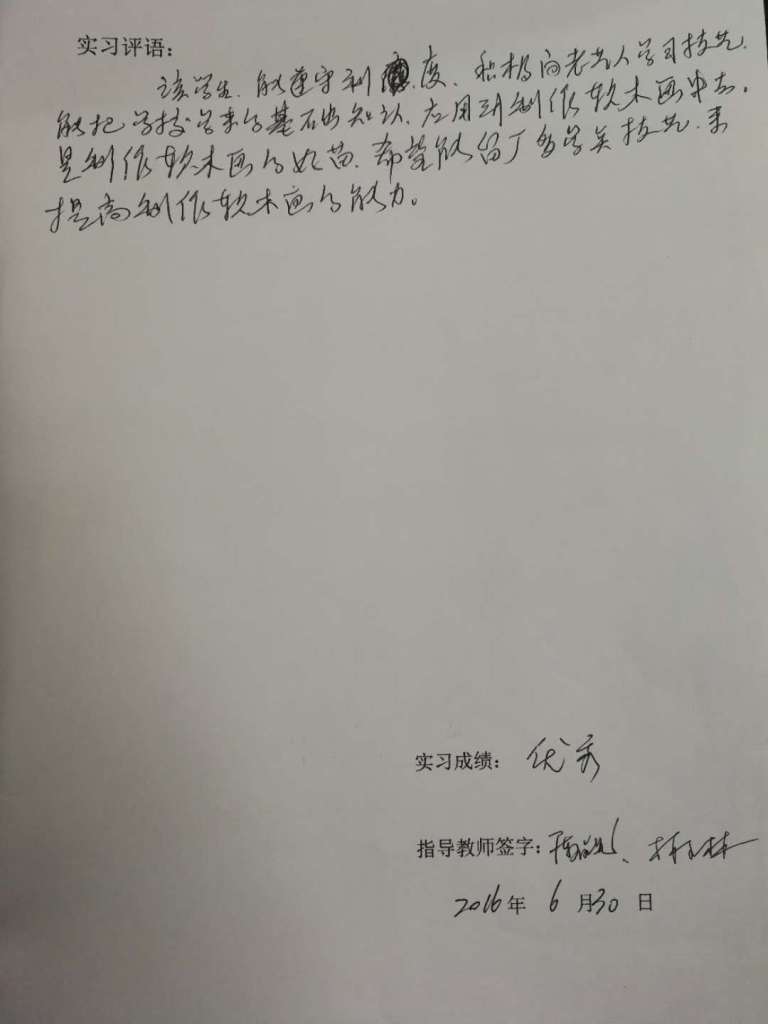 实习评语：
该学生，能遵守制度、积极向老艺人学习技艺，
能把学校学来的基础知识，应用到制作软木画中去。
是制作软木画的好苗，希望能留厂多学关技艺，来
提高制作软木画的能力。
实习成绩： 优秀
指导教师签字：
2016年 6 月30 日